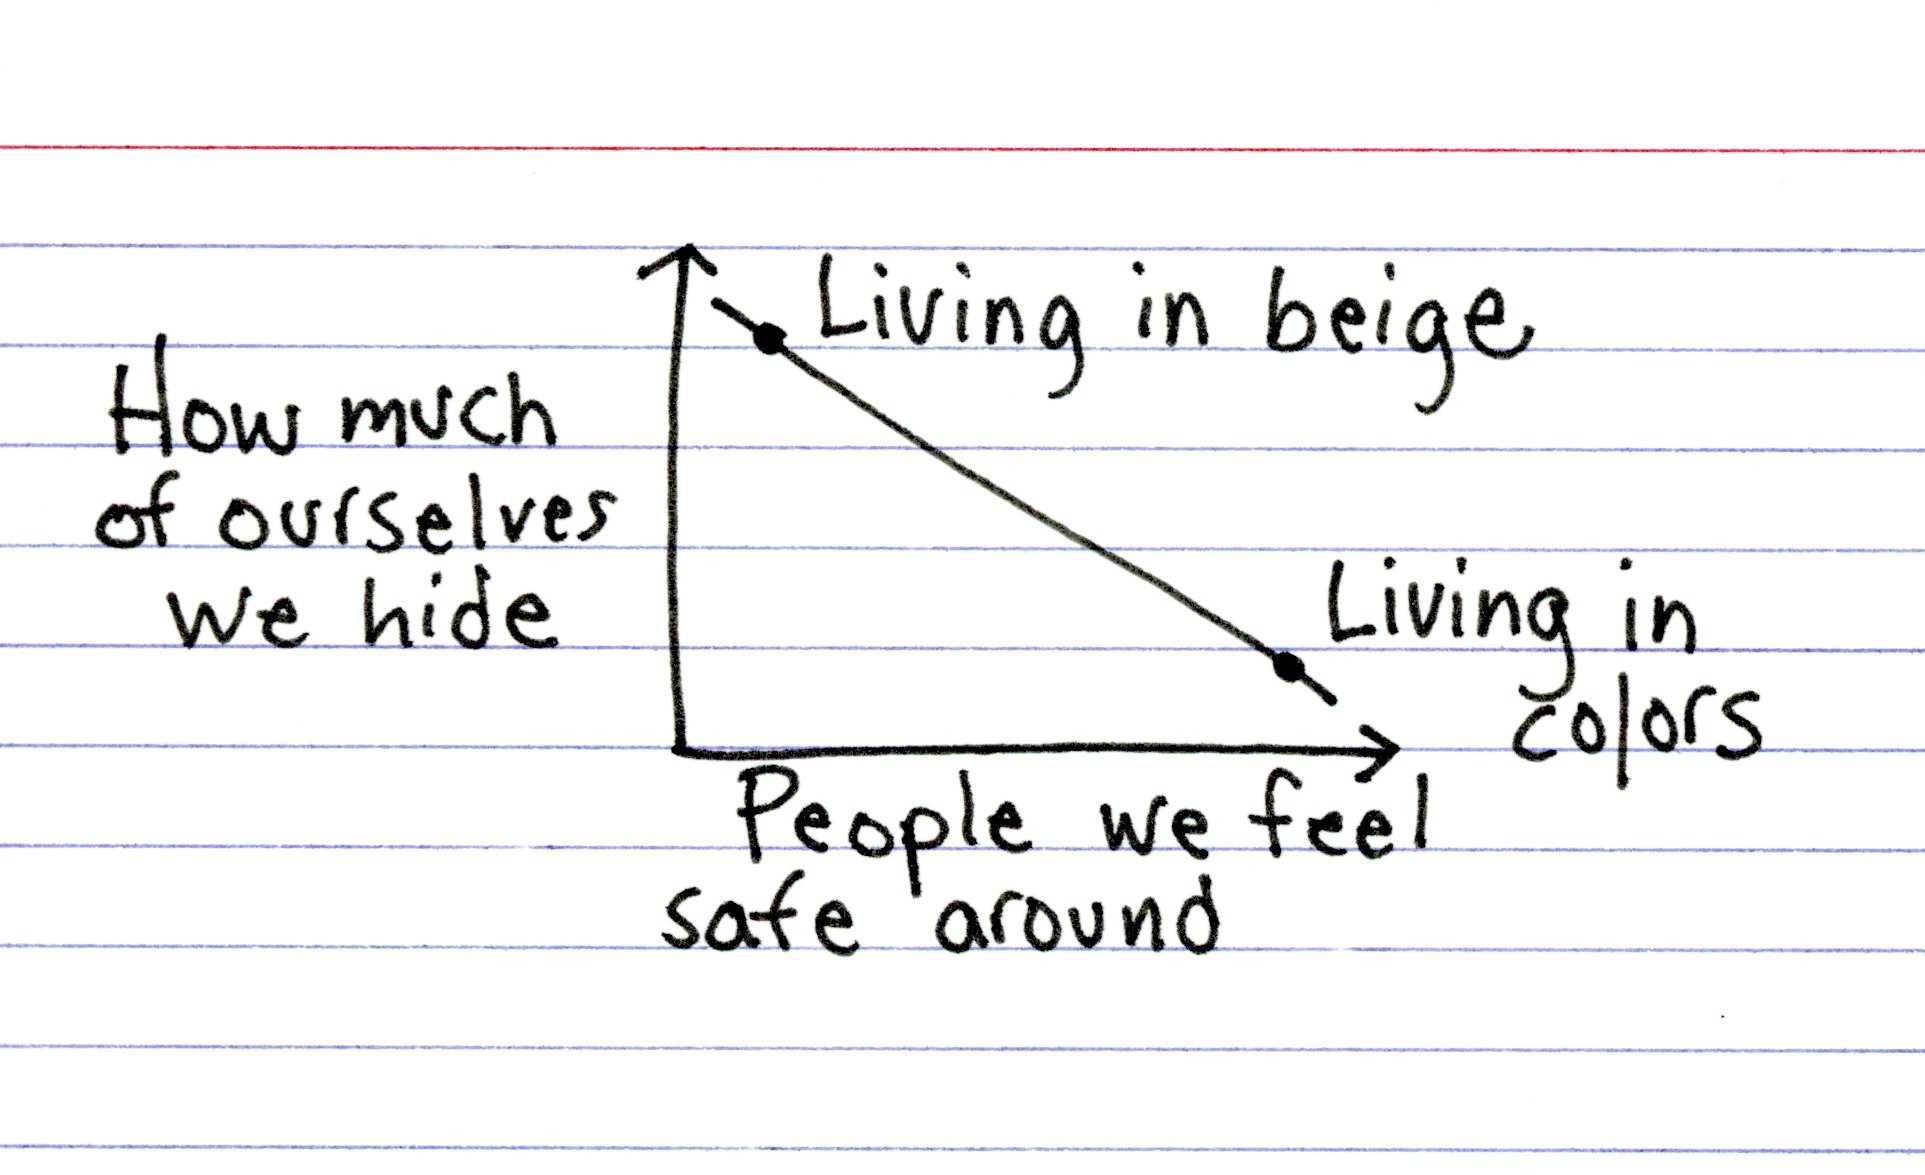 Living in beige
How much
of ourselves
we hide
Living in
colors
People we feel
safe around